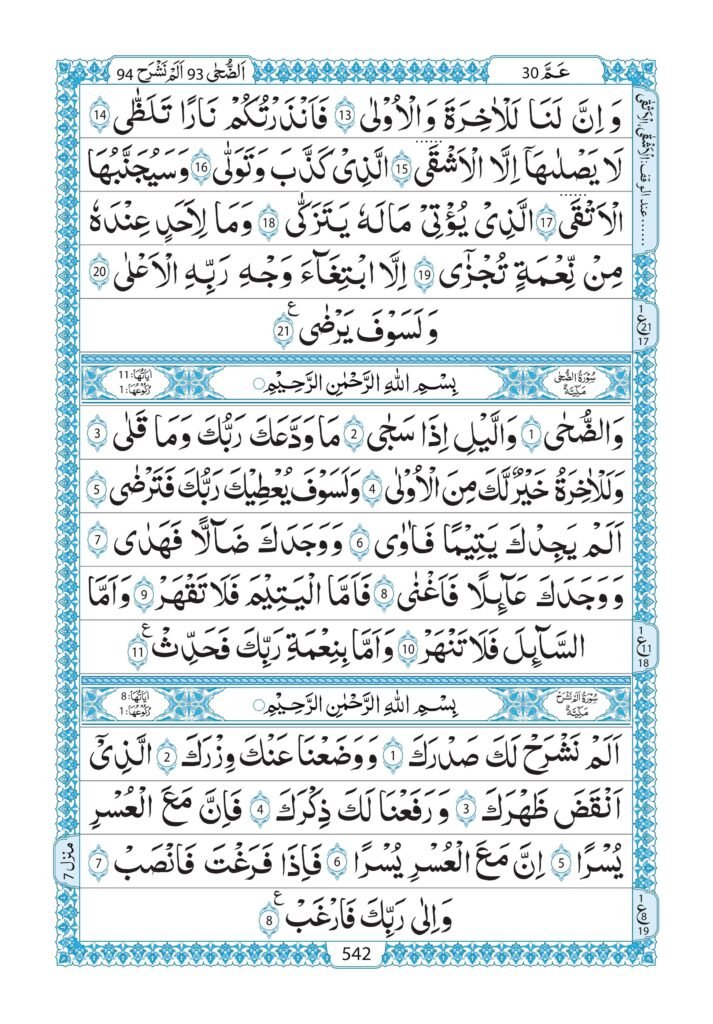 عَمَّ 30
اَلضُّحٰى 93 اَلَمْ نَشْرَحْ 94
وَ اِنَّ لَنَا لَلْاٰخِرَةَ وَ الْاُوْلٰى 13 فَاَنْذَرْتُكُمْ نَارًا تَلَظّٰى 14
لَا يَصْلٰىهَاۤ اِلَّا الْاَشْقَى 15 الَّذِىْ كَذَّبَ وَ تَوَلّٰى 16 وَ سَيُجَنَّبُهَا
الْاَتْقَى 17 الَّذِىْ يُؤْتِىْ مَالَهٗ يَتَزَكّٰى 18 وَ مَا لِاَحَدٍ عِنْدَهٗ
مِنْ نِّعْمَةٍ تُجْزٰٓى 19 اِلَّا ابْتِغَآءَ وَجْهِ رَبِّهِ الْاَعْلٰى 20
وَ لَسَوْفَ يَرْضٰى 21 ع
...... عند الوقف: اَلْاَشْقٰى، اَلْاَتْقٰى
1 ع 21 17
سُوْرَةُ الضُّحٰى مَكِّيَّةٌ
بِسْمِ اللّٰهِ الرَّحْمٰنِ الرَّحِيْمِ
اٰيَاتُهَا: 11 رُكُوْعُهَا: 1
وَالضُّحٰى 1 وَالَّيْلِ اِذَا سَجٰى 2 مَا وَدَّعَكَ رَبُّكَ وَمَا قَلٰى 3
وَلَلْاٰخِرَةُ خَيْرٌ لَّكَ مِنَ الْاُوْلٰى 4 وَلَسَوْفَ يُعْطِيْكَ رَبُّكَ فَتَرْضٰى 5
اَلَمْ يَجِدْكَ يَتِيْمًا فَاٰوٰى 6 وَ وَجَدَكَ ضَآلًّا فَهَدٰى 7
وَ وَجَدَكَ عَآئِلًا فَاَغْنٰى 8 فَاَمَّا الْيَتِيْمَ فَلَا تَقْهَرْ 9 وَ اَمَّا
السَّآئِلَ فَلَا تَنْهَرْ 10 وَ اَمَّا بِنِعْمَةِ رَبِّكَ فَحَدِّثْ 11 ع
1 ع 11 18
سُوْرَةُ اَلَمْ نَشْرَحْ مَكِّيَّةٌ
بِسْمِ اللّٰهِ الرَّحْمٰنِ الرَّحِيْمِ
اٰيَاتُهَا: 8 رُكُوْعُهَا: 1
اَلَمْ نَشْرَحْ لَكَ صَدْرَكَ 1 وَ وَضَعْنَا عَنْكَ وِزْرَكَ 2 الَّذِىْۤ
اَنْقَضَ ظَهْرَكَ 3 وَ رَفَعْنَا لَكَ ذِكْرَكَ 4 فَاِنَّ مَعَ الْعُسْرِ
يُسْرًا 5 اِنَّ مَعَ الْعُسْرِ يُسْرًا 6 فَاِذَا فَرَغْتَ فَانْصَبْ 7
وَ اِلٰى رَبِّكَ فَارْغَبْ 8 ع
منزل 7
1 ع 8 19
542